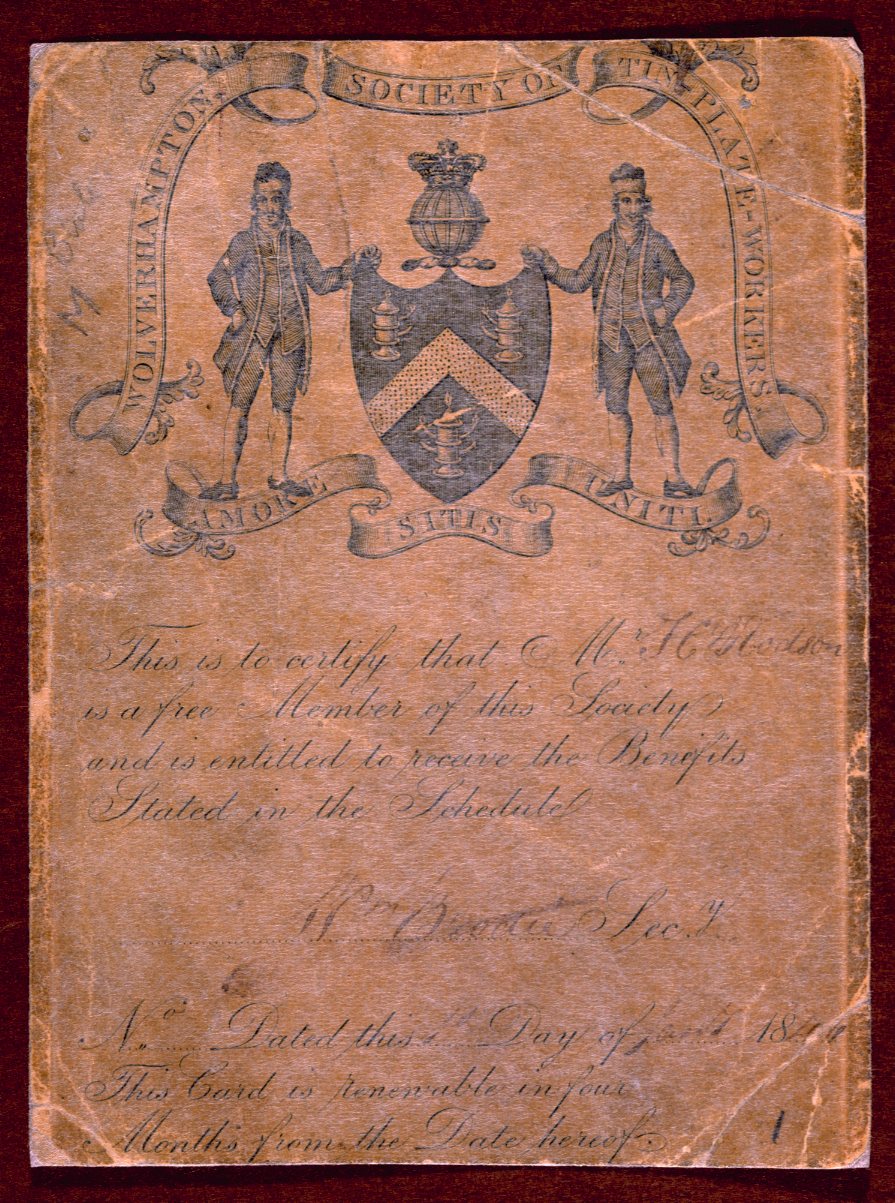 WOLVERHAMPTON SOCIETY OF TIN-PLATE-WORKERS.
AMORE SITIS UNITI.
This is to certify that Mr. Hodson
is a free Member of this Society
and is entitled to receive the Benefits
Stated in the Schedule
Wm Secy.
No. Dated this 1st Day of 18
This Card is renewable in four
Months from the Date hereof.
1